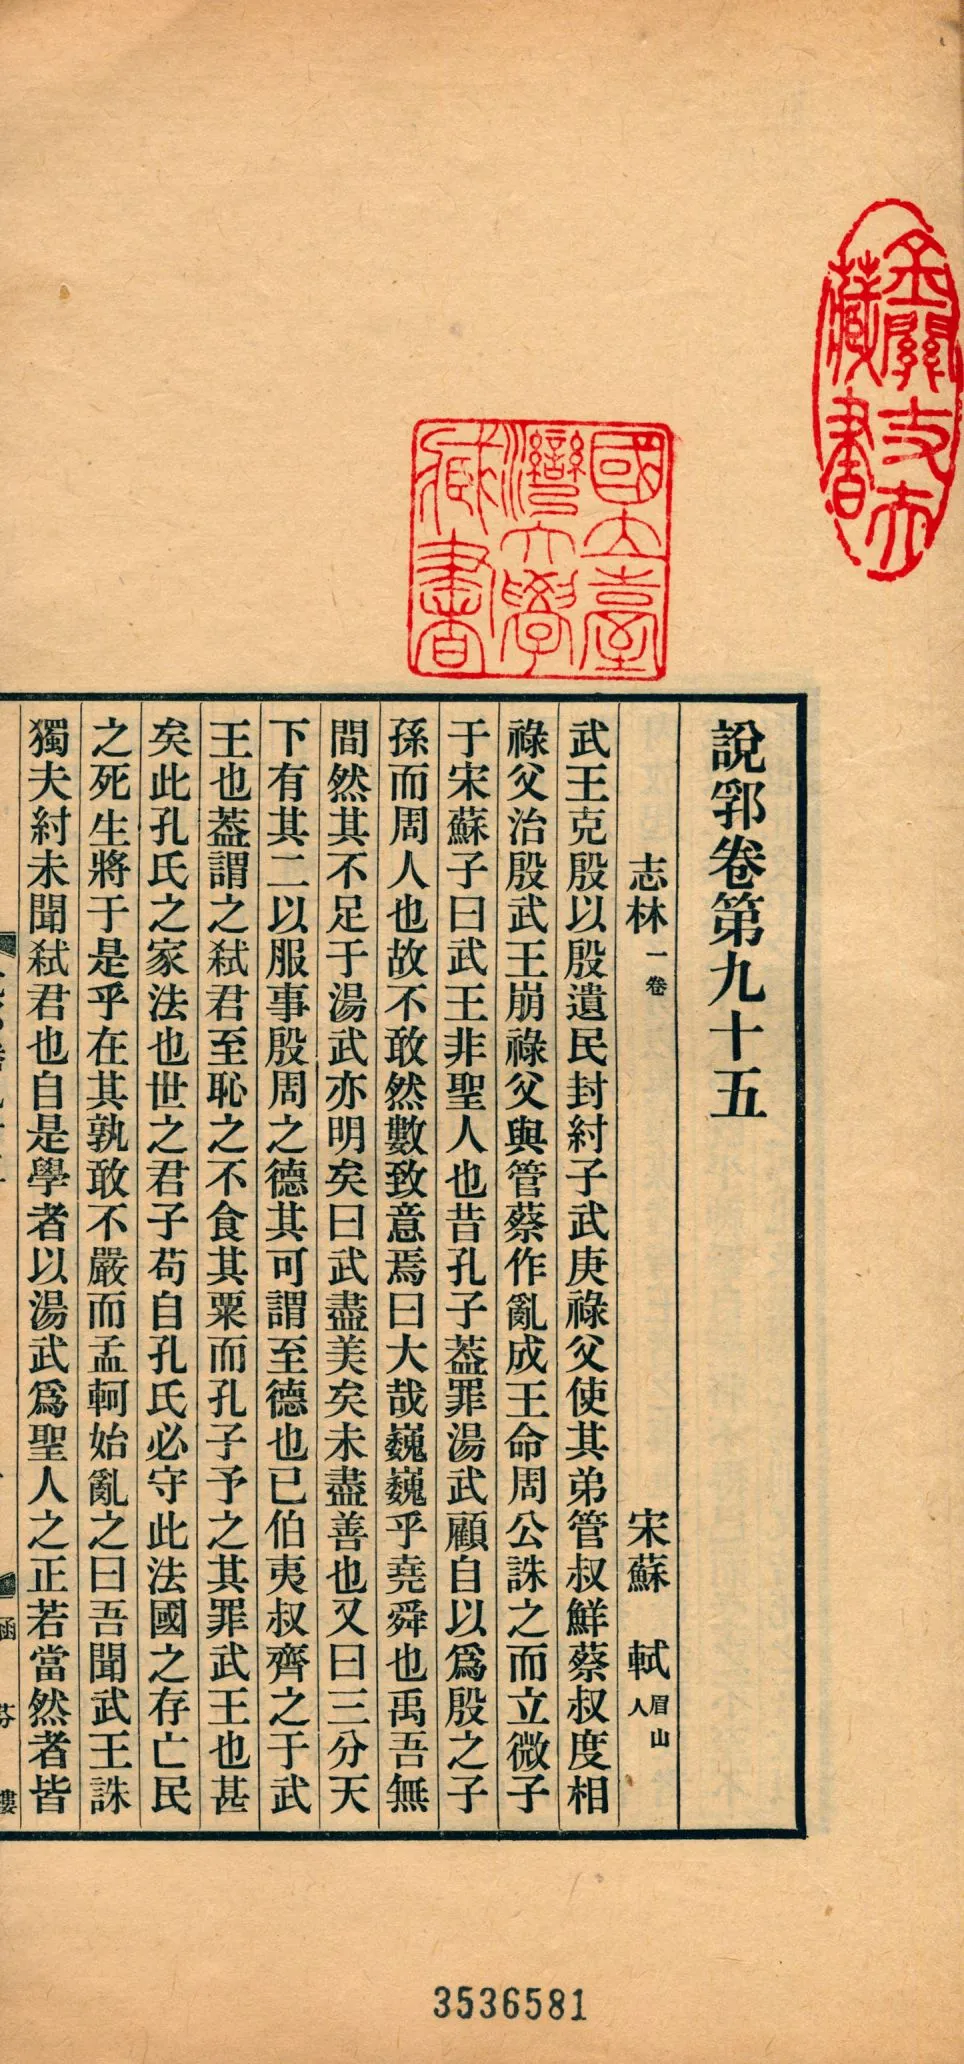 說郛卷第九十五
志林一卷 宋蘇 軾眉山人
武王克殷以殷遺民封紂子武庚祿父使其弟管叔鮮蔡叔度相
祿父治殷武王崩祿父與管蔡作亂成王命周公誅之而立微子
于宋蘇子曰武王非聖人也昔孔子葢罪湯武顧自以爲殷之子
孫而周人也故不敢然數致意焉曰大哉巍巍乎堯舜也禹吾無
間然其不足于湯武亦明矣曰武盡美矣未盡善也又曰三分天
下有其二以服事殷周之德其可謂至德也已伯夷叔齊之于武
王也葢謂之弑君至恥之不食其粟而孔子予之其罪武王也甚
矣此孔氏之家法也世之君子苟自孔氏必守此法國之存亡民
之死生將于是乎在其孰敢不嚴而孟軻始亂之曰吾聞武王誅
獨夫紂未聞弑君也自是學者以湯武爲聖人之正若當然者皆
國立臺灣大學藏書
藏書
3536581